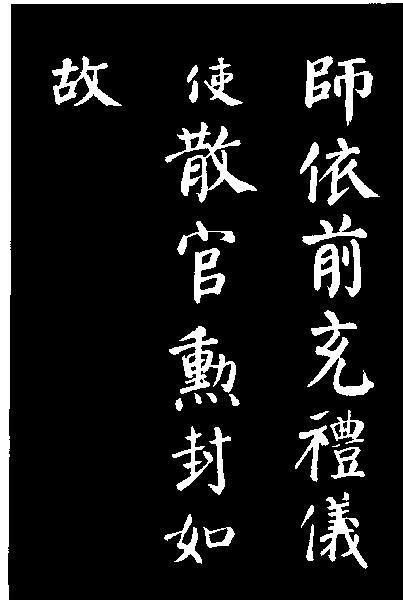 師依前充禮儀
使散官勳封如
故